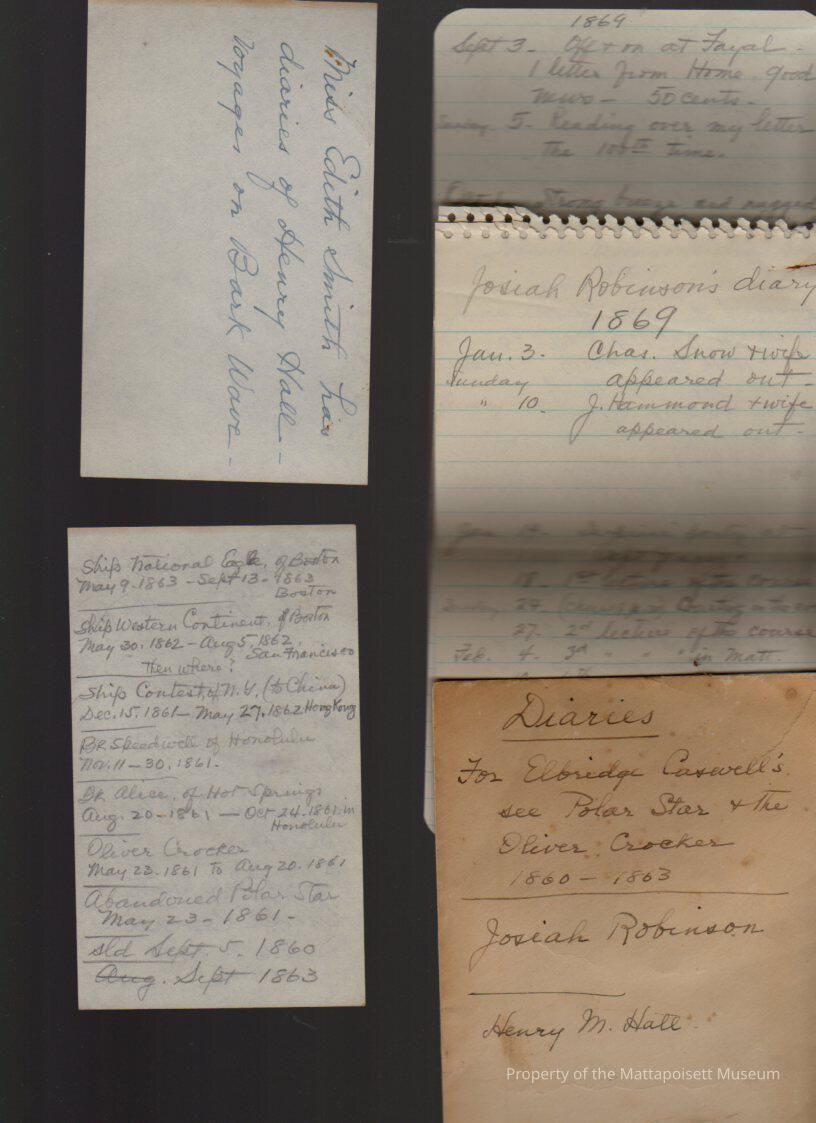 Miss Edith Smith has
diaries of Henry Hall -
Voyages on Bark Wave -
Ship National Eagle, of Boston
May 9. 1863 - Sept 13 - 1863
Boston
Ship Western Continent, of Boston
May 30, 1862 - Aug 5, 1862.
San Francisco
Then where?
Ship Contest, of N.Y. (to China)
Dec. 15, 1861 - May 27, 1862 Hong Kong
Br. Speedwell of Honolulu
Nov. 11 - 30, 1861.
Br Alice, of Hot Springs
Aug. 20 - 1861 - Oct 24. 1861. in
Honolulu
Oliver Crocker
May 23. 1861 to Aug 20. 1861
Abandoned Polar Star
May 23 - 1861 -
sld Sept 5. 1860
Aug. Sept 1863
1869
Sept 3 - Off + on at Fayal -
1 letter from Home. good
news - 50 cents -
Sunday 5. Reading over my letter
the 100th time.
Strong breeze and rugged
Josiah Robinson's diary
1869
Jan. 3. Chas. Snow + wife
Sunday appeared out -
" 10. J. Hammond + wife
appeared out -
18. 1st lecture of the course
Sunday 24.
27. 2d lecture of the course
Feb. 4. 3d " " " in Matt.
Diaries
For Elbridge Caswell's
see Polar Star + the
Oliver Crocker
1860 - 1863
Josiah Robinson
Henry M. Hall
Property of the Mattapoisett Museum